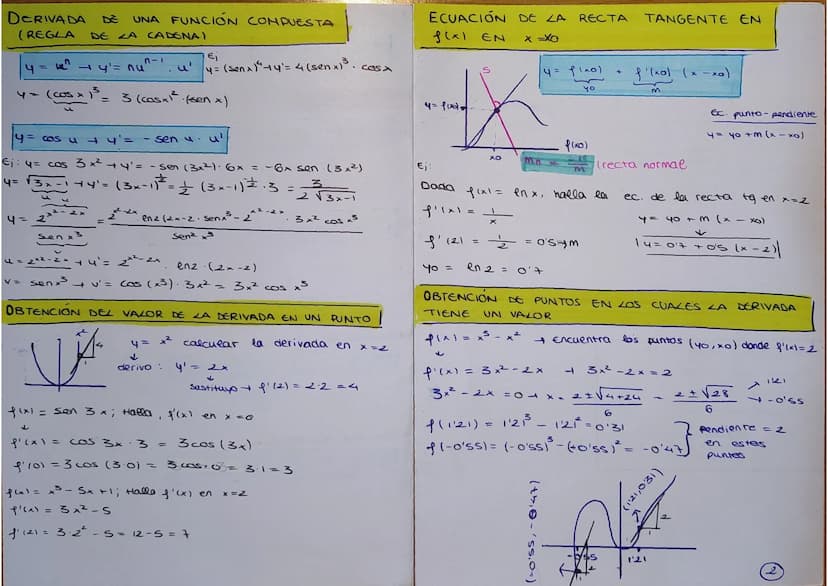 DERIVADA DE UNA FUNCIÓN COMPUESTA
(REGLA DE LA CADENA)
y = uⁿ → y' = nuⁿ⁻¹ · u'
Ej y = (sen x)⁴ → y' = 4(sen x)³ · cos x
y = (cos x)³ = 3 (cos x)² · (-sen x)
u
y = cos u → y' = - sen u · u'
Ej: y = cos 3x² → y' = - sen (3x²) · 6x = -6x sen (3x²)
y = √3x-1 → y' = (3x-1)^1/2 = 1/2 (3x-1)^-1/2 · 3 = 3 / 2√3x-1
y = 2^x²-2x / sen x³ = 2^x²-2x · ln2 (2x-2 · sen x³ - 2^x²-2x · 3x² cos x³ / sen² x³
u = 2^x²-2x → u' = 2^x²-2x · ln2 · (2x-2)
v = sen x³ → v' = cos (x³) · 3x² = 3x² cos x³
OBTENCIÓN DEL VALOR DE LA DERIVADA EN UN PUNTO
x²
4
1
y = x² calcular la derivada en x=2
derivo: y' = 2x
sustituyo → f'(2) = 2·2 = 4
f(x) = sen 3x; Halla, f'(x) en x=0
f'(x) = cos 3x · 3 = 3 cos (3x)
f'(0) = 3 cos (3·0) = 3 cos·0 = 3·1 = 3
f(x) = x³ - 5x + 1; Halla f'(x) en x=2
f'(x) = 3x² - 5
f'(2) = 3·2² - 5 = 12 - 5 = 7
ECUACIÓN DE LA RECTA TANGENTE EN
f(x) EN x = x0
y = f(x0) + f'(x0) (x - x0)
y0
m
S
y = f(x0)
f(x0)
x0
Ec. punto-pendiente
y = y0 + m (x - x0)
(recta normal
Ej:
Dada f(x) = ln x, halla la ec. de la recta tg en x=2
f'(x) = 1/x
y = y0 + m (x - x0)
f'(2) = 1/2 = 0'5 → m
y = 0'7 + 0'5 (x - 2)
y0 = ln 2 = 0'7
OBTENCIÓN DE PUNTOS EN LOS CUALES LA DERIVADA
TIENE UN VALOR
f(x) = x³ - x² → encuentra los puntos (y0, x0) donde f'(x)=2
f'(x) = 3x² - 2x → 3x² - 2x = 2
3x² - 2x = 0 → x = 2±√4+24 / 6 = 2±√28 / 6 → 1'21 → -0'55
f(1'21) = 1'21³ - 1'21² = 0'31
f(-0'55) = (-0'55)³ - (+0'55)² = -0'47
pendiente = 2
en estos
puntos
(-0'55, -0'47)
(1'21, 0'31)
2
1
-0'55
1'21
1
2
2